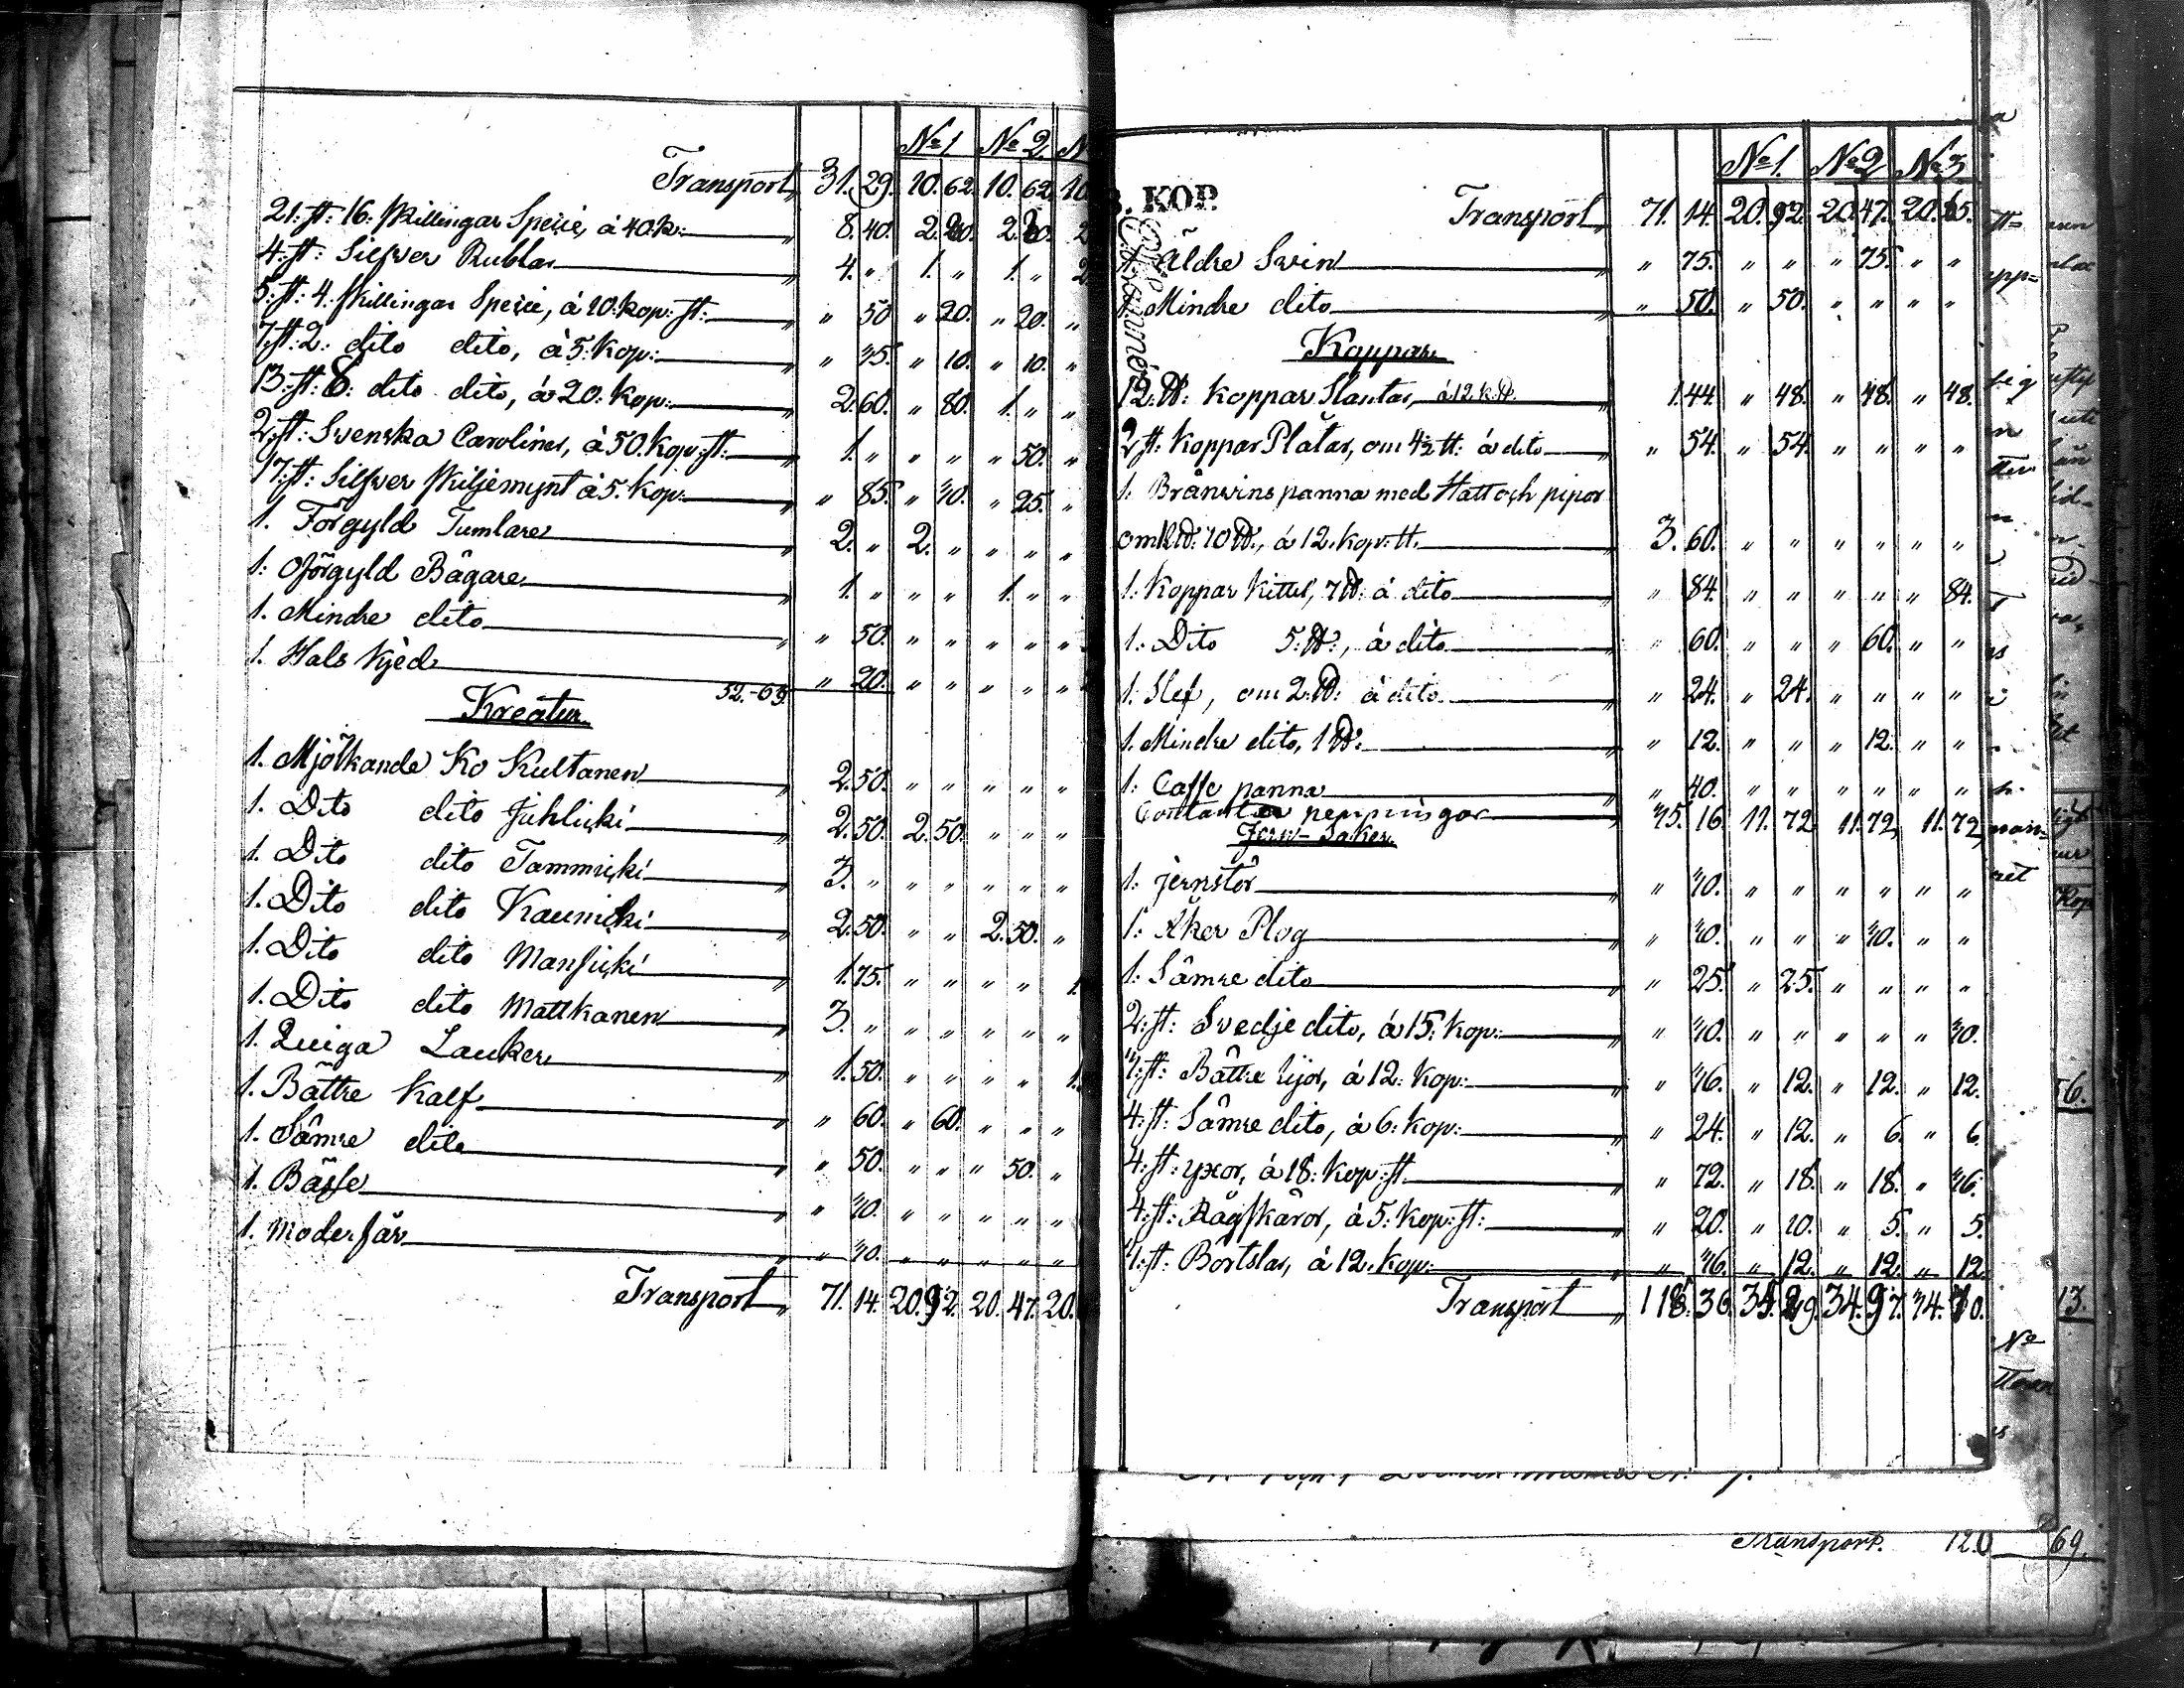 No 1. No 2. N
Transport, 31. 29. 10. 62. 10. 62. 10
21. st: 16. skillingar Specie, á 40. k: " 8. 40. 2. 80. 2. 80. 2
4. st: Silfver Rublar " 4. " 1. " 1. " 2
5. st: 4. skillingar Specie, á 10. kop: st: " " 50 " 20. " 20. "
7. st: 2. dito dito, á 5. kop: " " 35. " 10. " 10. "
13. st: 8. dito dito, á 20. kop: " 2. 60. " 80. 1. " "
2. st: Svenska Caroliner, á 50. kop: st: " 1. " " " " 50. "
17. st: Silfver skiljemynt á 5. kop: " " 85. " 40. " 25. "
1. Förgyld Tumlare " 2. " 2. " " " "
1. Oförgyld Bägare " 1. " " " 1. " "
1. Mindre dito " " 50. " " " " "
1. Hals kjed " 20. " " " " "
52.-69.
Kreatur
1. Mjölkande Ko Kultanen 2. 50. " " " " "
1. Dito dito Juhlicki " 2. 50. 2. 50. " " "
1. Dito dito Tammicki " 3. " " " " " "
1. Dito dito Kaunicki " 2. 50. " " 2. 50. "
1. Dito dito Mansicki " 1. 75. " " " " 1.
1. Dito dito Mattkanen " 3. " " " " " "
1. Quiga Lauker " 1. 50. " " " " 1.
1. Bättre Kalf " " 60. " 60. " " "
1. Sämre dito " " 50. " " " 50. "
1. Bässe " " 40. " " " " "
1. Moderfår " " 40. " " " " "
Transport " 71. 14. 20. 92. 20. 47. 20.
No 1. No 2 No 3
. KOP.
Transport " 71. 14. 20. 92. 20. 47. 20. 65.
1. Äldre Svin " " 75. " " " 75. " "
1. Mindre dito " " 50. " 50. " " " "
Koppar
12. ℔: Koppar Slantar, á 12. k. ℔. 1. 44. " 48. " 48. " 48.
2 st: Koppar Plåtar, om 4½ ℔: á dito " 54. " 54. " " " "
1. Bränvins panna med Hatt och pipor
om 1 L℔. 10 ℔., á 12. kop: ℔. 3. 60. " " " " " "
1. Koppar Kittel, 7 ℔: á dito " 84. " " " " " 84.
1. Dito 5. ℔:, á dito " 60. " " " 60. " "
1. Slef, om 2. ℔: á dito " " 24. " 24. " " " "
1. Mindre dito, 1 ℔: " " 12. " " " 12. " "
1. Caffe panna " " 40. " " " " " "
Contanta penningar 35. 16. 11. 72 11. 72, 11. 72,
Jern-Saker
1. Jernstör " " 40. " " " " " "
1. Åker Plog " " 40. " " " 40. " "
1. Sämre dito " " 25. " 25. " " " "
2. st: Svedje dito, á 15. kop: " " 30. " " " " " 30.
3. st: Bättre lijor, á 12. kop: " " 36. " 12. " 12. " 12.
4. st: Sämre dito, á 6. kop: " " 24. " 12. " 6. " 6.
4. st: yxor, á 18. kop: st. " " 72. " 18. " 18. " 36.
4. st: Rågskäror, á 5. kop: st: " " 20. " 10. " 5. " 5.
3. st. Bortslar, á 12. kop: " " 36. " 12. " 12. " 12
Transport " 118. 36. 35. 49. 34. 97. 34. 70.
Transport. 120 69.